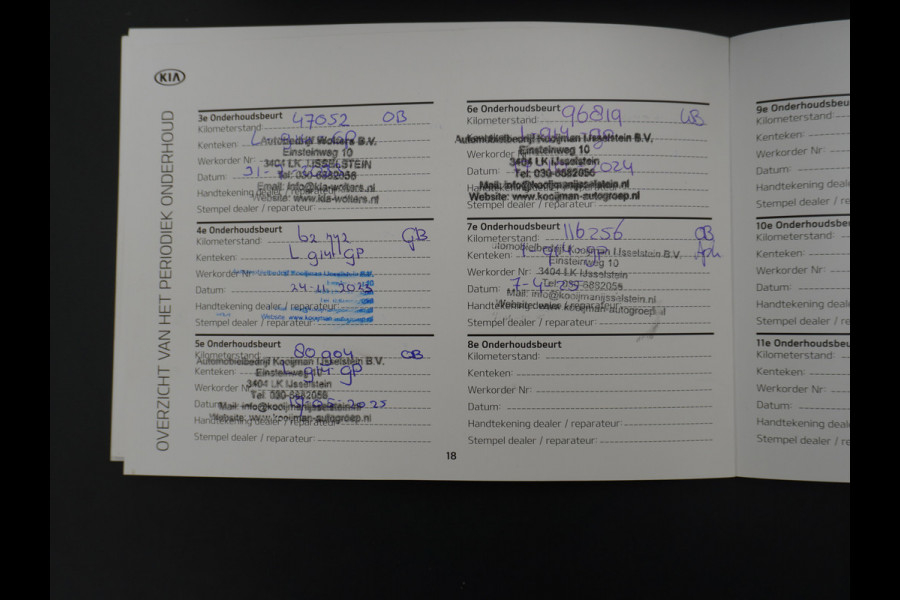 KIA
OVERZICHT VAN HET PERIODIEK ONDERHOUD
3e Onderhoudsbeurt
Kilometerstand: 47052 OB
Kenteken: L
Autobedrijf Wolters B.V.
Einsteinweg 10
Werkorder Nr:
3404 LK IJSSELSTEIN
Datum: 31-
Tel: 030-6882056
Email: info@kia-wolters.nl
Handtekening dealer / reparateur:
Website: www.kia-wolters.nl
Stempel dealer / reparateur:
4e Onderhoudsbeurt
Kilometerstand: GB
Kenteken: L GP
Werkorder Nr:
Automobielbedrijf Kooijman IJsselstein B.V.
Datum: 24-11-2023
Handtekening dealer / reparateur:
Stempel dealer / reparateur:
www.kooijman-autogroep.nl
5e Onderhoudsbeurt
Kilometerstand: 80904 OB
Automobielbedrijf Kooijman IJsselstein B.V.
Kenteken: L GP
Einsteinweg
Werkorder Nr:
3404 LK IJsselstein
Tel. 030-6882056
Datum: 2025
Mail: info@kooijmanijsselstein.nl
Website: www.kooijman-autogroep.nl
Handtekening dealer / reparateur:
Stempel dealer / reparateur:
6e Onderhoudsbeurt
Kilometerstand: 96819
Kenteken:
Automobielbedrijf Kooijman IJsselstein B.V.
Einsteinweg 10
Werkorder Nr:
3404 LK IJsselstein
Datum: 024
Tel. 030-6882056
Mail: info@kooijmanijsselstein.nl
Handtekening dealer / reparateur:
Website: www.kooijman-autogroep.nl
Stempel dealer / reparateur:
7e Onderhoudsbeurt
Kilometerstand: 116256 OB
Automobielbedrijf Kooijman IJsselstein B.V.
Kenteken:
Einsteinweg 10
Werkorder Nr:
3404 LK IJsselstein
Datum: 7-4-25
Tel. 030-6882056
Mail: info@kooijmanijsselstein.nl
Handtekening dealer / reparateur:
Website: www.kooijman-autogroep.nl
Stempel dealer / reparateur:
8e Onderhoudsbeurt
Kilometerstand:
Kenteken:
Werkorder Nr:
Datum:
Handtekening dealer / reparateur:
Stempel dealer / reparateur:
18
9e Onderhoudsbeu
Kilometerstand:
Kenteken:
Werkorder Nr:
Datum:
Handtekening deale
Stempel dealer / r
10e Onderhoudsbe
Kilometerstand:
Kenteken:
Werkorder Nr:
Datum:
Handtekening deal
Stempel dealer / r
11e Onderhoudsbe
Kilometerstand:
Kenteken:
Werkorder Nr:
Datum:
Handtekening deal
Stempel dealer / re